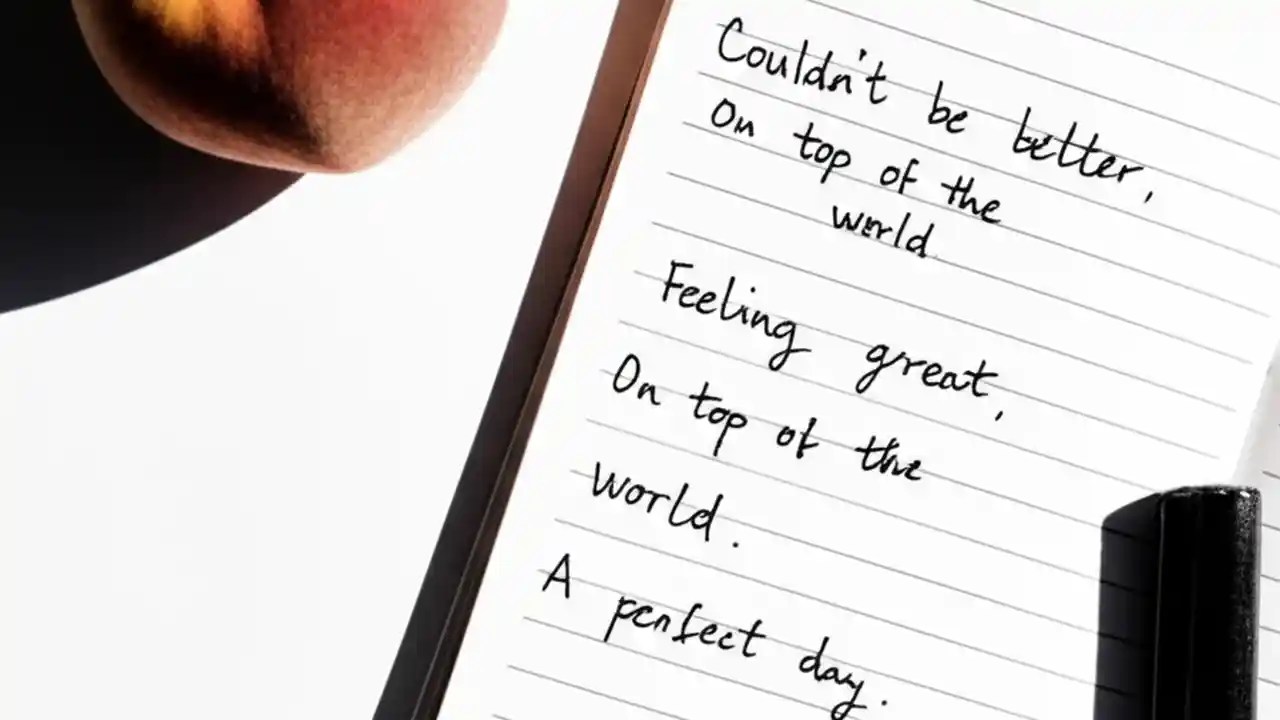 Couldn't be better,
On top of the
world.
Feeling great,
On top of the
world.
A perfect day.